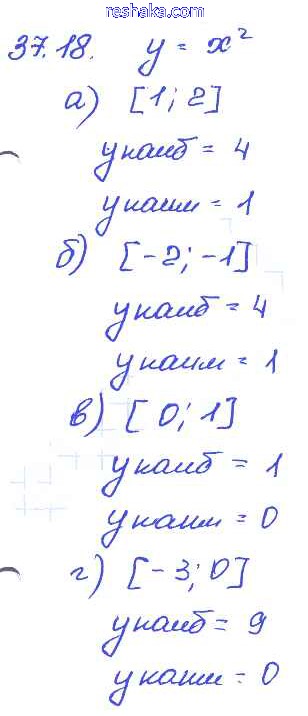 reshaka.com
37.18. y = x²
а) [1; 2]
yнаиб = 4
yнаим = 1
б) [-2; -1]
yнаиб = 4
yнаим = 1
в) [0; 1]
yнаиб = 1
yнаим = 0
г) [-3; 0]
yнаиб = 9
yнаим = 0